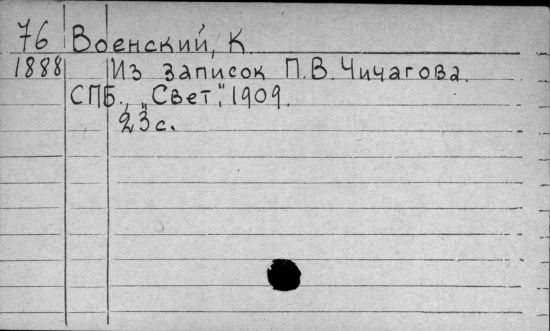 76 Военский, К.
1888 Из записок П.В. Чичагова.
СПБ., „Свет", 1909.
23 с.